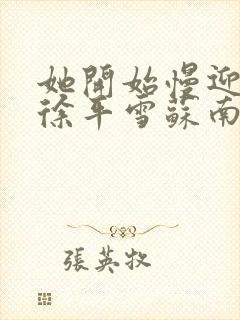 她開始慢迎
徐平雪蘇南
張英牧